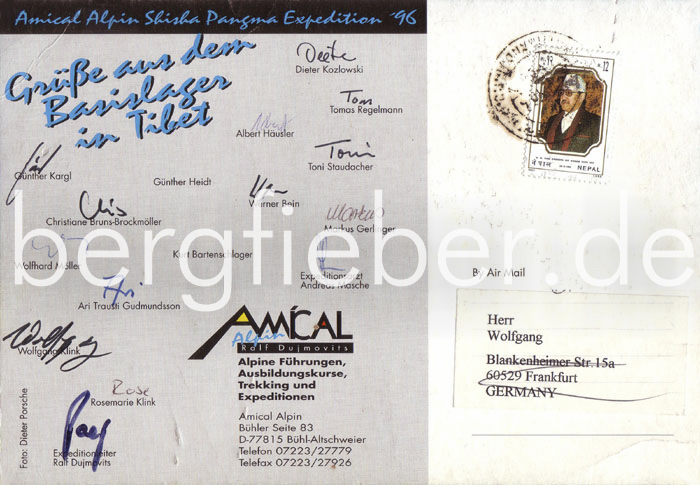 Amical Alpin Shisha Pangma Expedition '96
Grüße aus dem
Basislager
in Tibet
Dieter
Dieter Kozlowski
Tom
Tomas Regelmann
Albert Häusler
Toni
Toni Staudacher
Günther Kargl
Günther Heidt
Werner Bein
Chris
Christiane Bruns-Brockmöller
Markus
Markus Gerlinger
Wolfhard Möller
Kurt Bartenschlager
Expeditionsarzt
Andreas Masche
Ari Trausti Gudmundsson
Wolfgang
Wolfgang Klink
Rose
Rosemarie Klink
Expeditionsleiter
Ralf Dujmovits
Foto: Dieter Porsche
AMICAL
Alpin
Ralf Dujmovits
Alpine Führungen,
Ausbildungskurse,
Trekking und
Expeditionen
Amical Alpin
Bühler Seite 83
D-77815 Bühl-Altschweier
Telefon 07223/27779
Telefax 07223/27926
12
नेपाल NEPAL
By Air Mail
Herr
Wolfgang
Blankenheimer Str. 15a
60529 Frankfurt
GERMANY
bergfieber.de